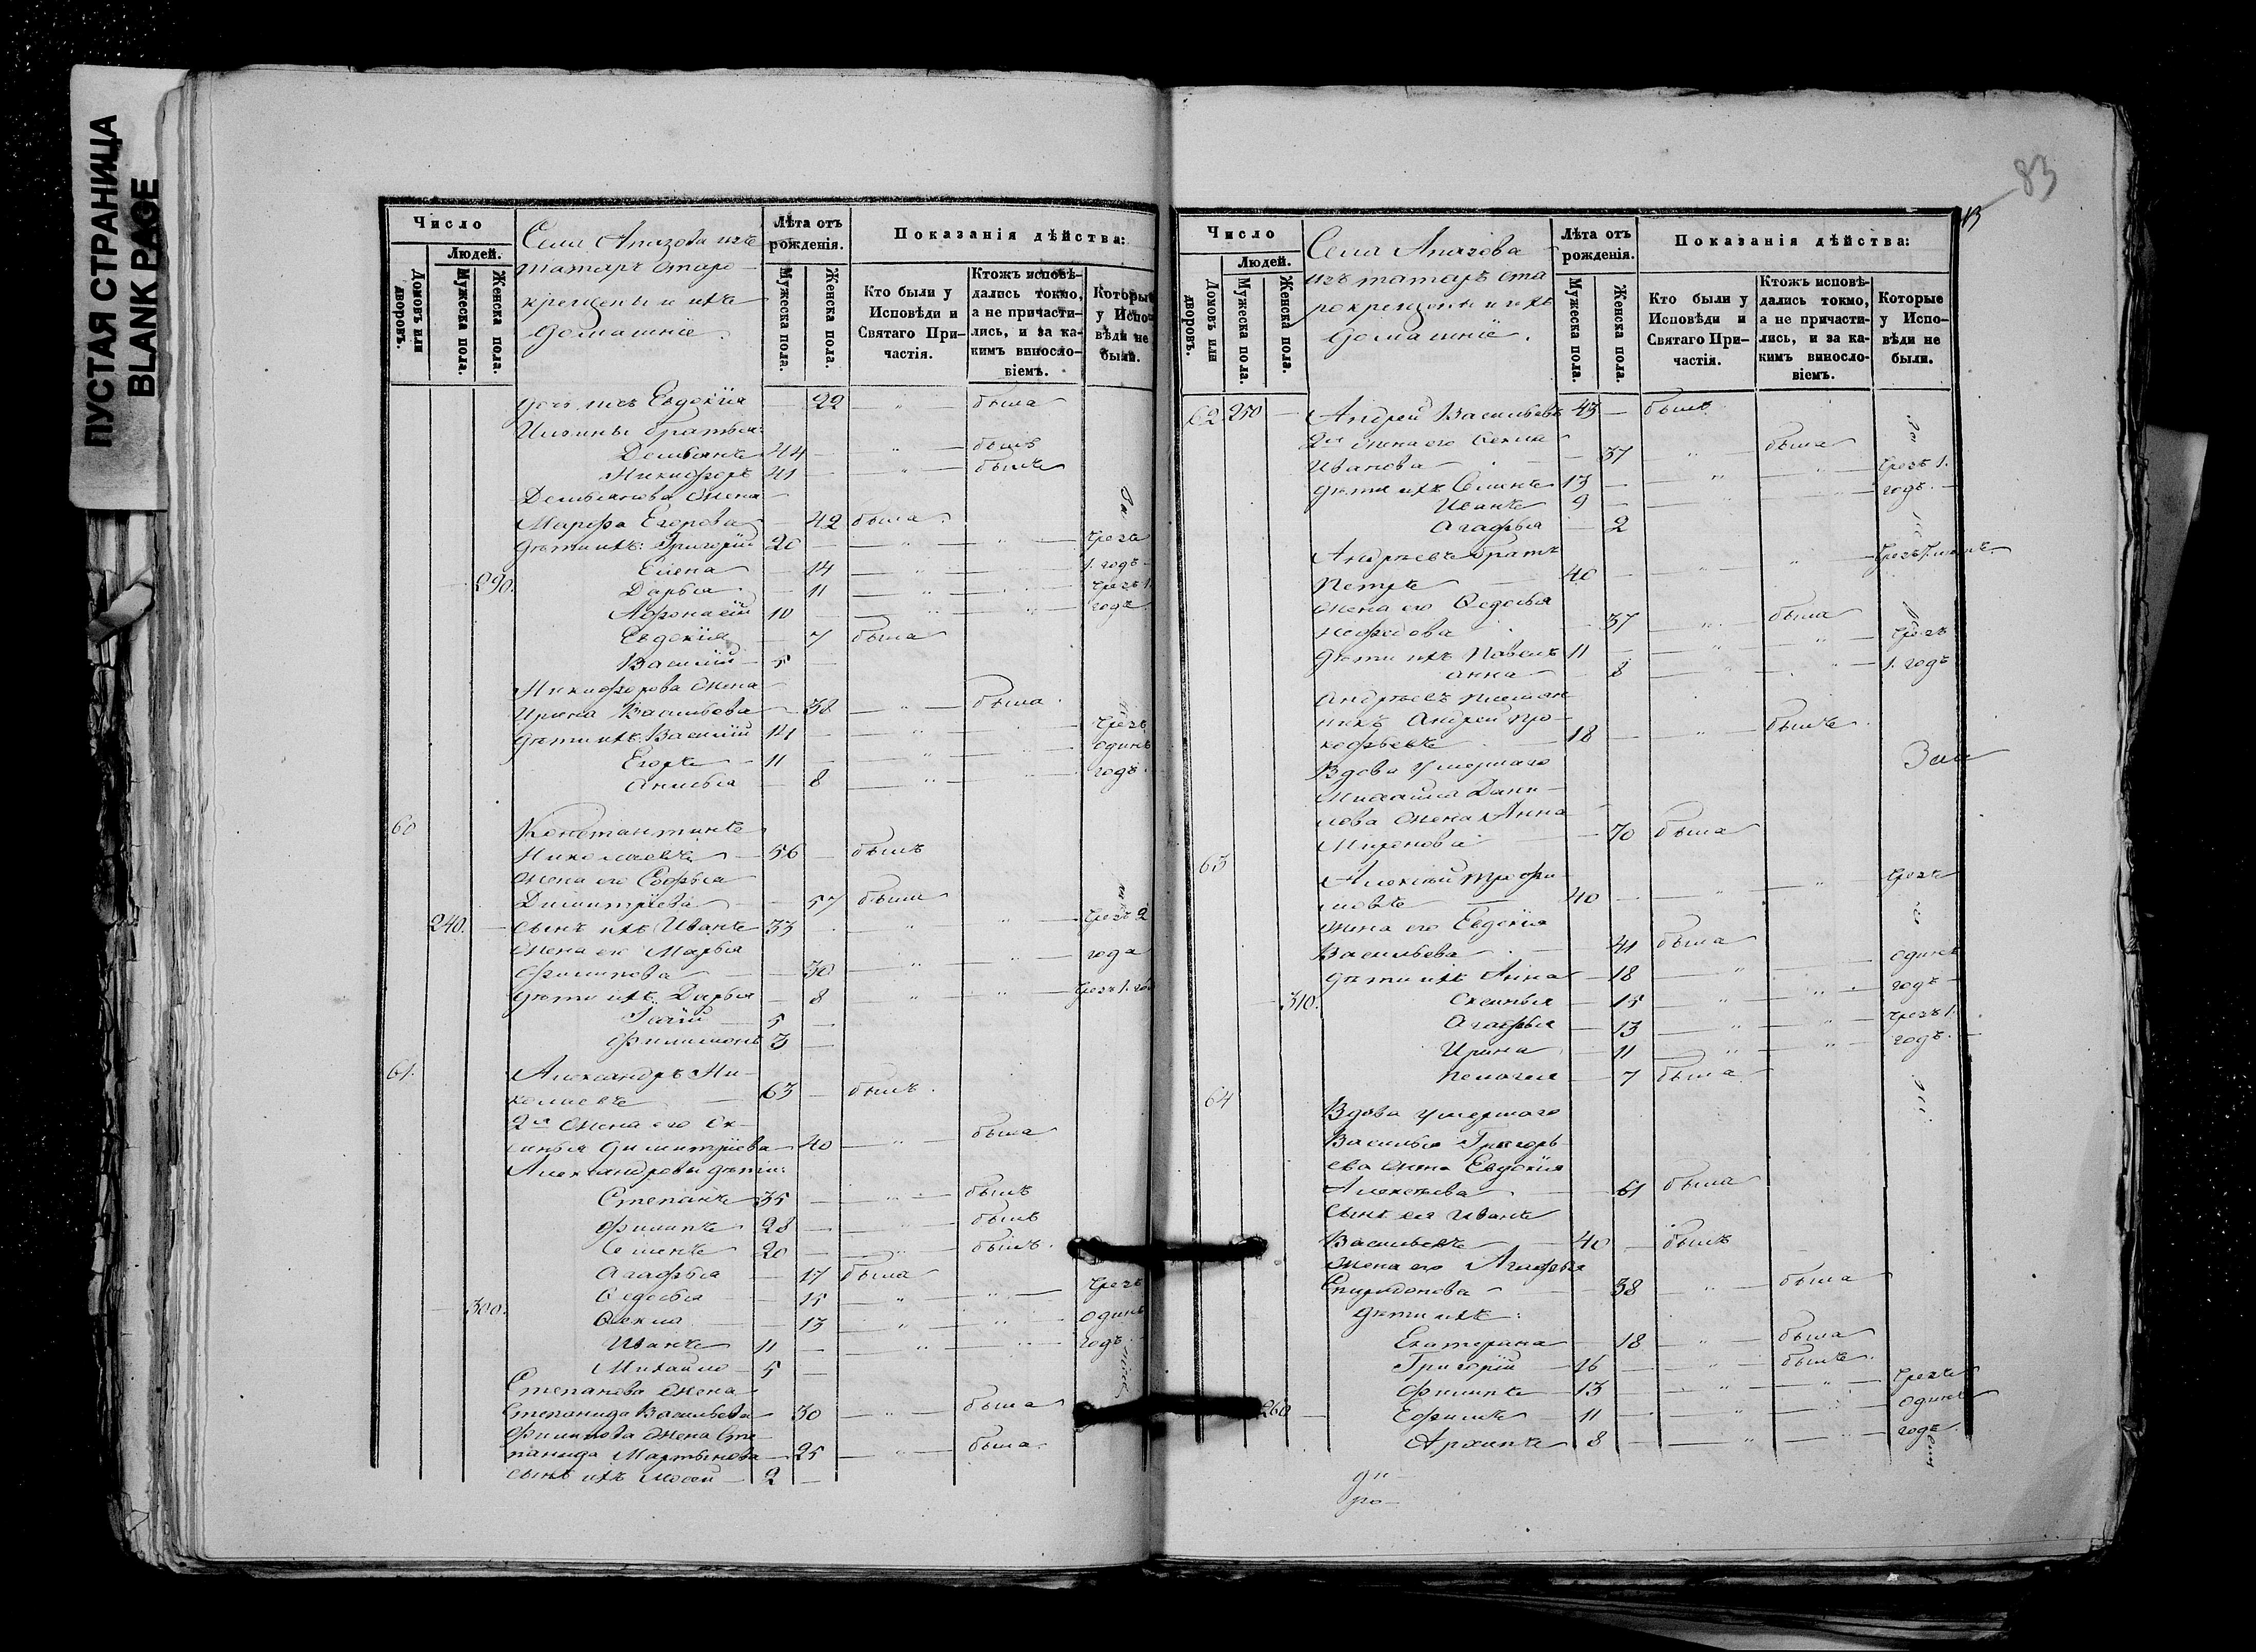 ПУСТАЯ СТРАНИЦА
BLANK PAGE
Число
Людей.
Домовъ или дворовъ.
Мужеска пола.
Женска пола.
Села Апазова изъ
татаръ старо
крещены и ихъ
домашніе.
Лѣта отъ рожденія.
Мужеска пола.
Женска пола.
Показанія дѣйства:
Кто были у Исповѣди и Святаго Причастія.
Ктожъ исповѣдались токмо, а не причастились, и за какимъ винословіемъ.
Которые у Исповѣди не были.
дочь ихъ Евдокія 22 была
братья:
Демьянъ 44 былъ
Никифоръ 41 былъ
Демьянова жена
Марфа Егорова 42 была
дѣти ихъ: Григорій 20 чрезъ
Елена 14 1. годъ
290. Дарья 11 чрезъ 1.
Афонасій 10 годъ
Евдокія 7 была
Василій 5
Никифорова жена
Ирина Васильева 38 была
дѣти ихъ Василій 14 чрезъ
Егоръ 11 одинъ
Анисья 8 годъ
60 Константинъ
Николаевъ 56 былъ
жена его Софья
Димитріева 57 была
240. сынъ ихъ Иванъ 33 чрезъ 2
жена его Марья
Филипова 30 года
дѣти ихъ Дарья 8 чрезъ 1. годъ
5
Филимонъ 3
61. Александръ Ни-
колаевъ 63 былъ
2я жена его Ок-
синья Димитріева 40 была
Александровы дѣти:
Степанъ 35 былъ
Филипъ 28 былъ
Семенъ 20 былъ
Агафья 17 была
Ѳедосья 15 чрезъ
300. Ѳекла 13 одинъ
Иванъ 11 годъ
Михайло 5
Степанова жена
Степанида Васильева 30 была
Филипова жена Сте-
панида Мартынова 25 была
сынъ ихъ 2
83
Число
Людей.
Домовъ или дворовъ.
Мужеска пола.
Женска пола.
Села Апазова
изъ татаръ ста
рокрещены и ихъ
домашніе.
Лѣта отъ рожденія.
Мужеска пола.
Женска пола.
Показанія дѣйства:
Кто были у Исповѣди и Святаго Причастія.
Ктожъ исповѣдались токмо, а не причастились, и за какимъ винословіемъ.
Которые у Исповѣди не были.
62 250 Андрей Васильевъ 43 былъ
2я жена его Ѳекла
Иванова 37 была
дѣти ихъ Семенъ 13 чрезъ 1.
Иванъ 9 годъ
Агафья 2
Андреевъ братъ
Петръ 40
жена его Ѳедосья
Нефедова 37 была
дѣти ихъ Павелъ 11 чрезъ
Анна 8 1. годъ
Андреевъ племян
никъ Андрей Про-
кофьевъ 18 былъ
Вдова умершаго
Михайла Дани-
лова жена Анна
Миронова 70 была
63 Алексѣй Трофи
мовъ 40 чрезъ
жена его Евдокія
Васильева 41 была
дѣти ихъ Анна 18 одинъ
310. Оксинья 15 годъ
Агафья 13 чрезъ 1.
Ирина 11 годъ
Пелагея 7 была
64 Вдова умершаго
Василья Григорь
ева жена Евдокія
Алексѣева 61 была
сынъ ея Иванъ
Васильевъ 40 былъ
жена его Агафья
Спиридонова 38 была
дѣти ихъ:
Екатерина 18 была
Григорій 16 былъ
Филипъ 13 чрезъ
260 Ефимъ 11 одинъ
Архипъ 8 годъ